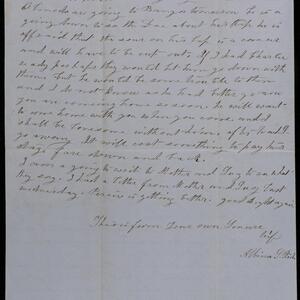 Almeda are going to Bangor tomorrow he is a
going down to see the Dr. about his lip he is
afraid that the sore on his lip is a cancer
and will have to be cut out. If I had Charlie
ready perhaps they would let him go down with
them but he would be some trouble to them
and I do not know as he had better go now
you are coming home so soon he will want
to come home with you when you come and I
shall be lonesome without him if he had
go away. It will cost something to pay his
stage fare down and back.
I am going to write to Mother and Guy to see what
they say. I had a letter from Mother and Guy last
wednesday. is getting better. good night again
This is from your own
wife
Albina S.